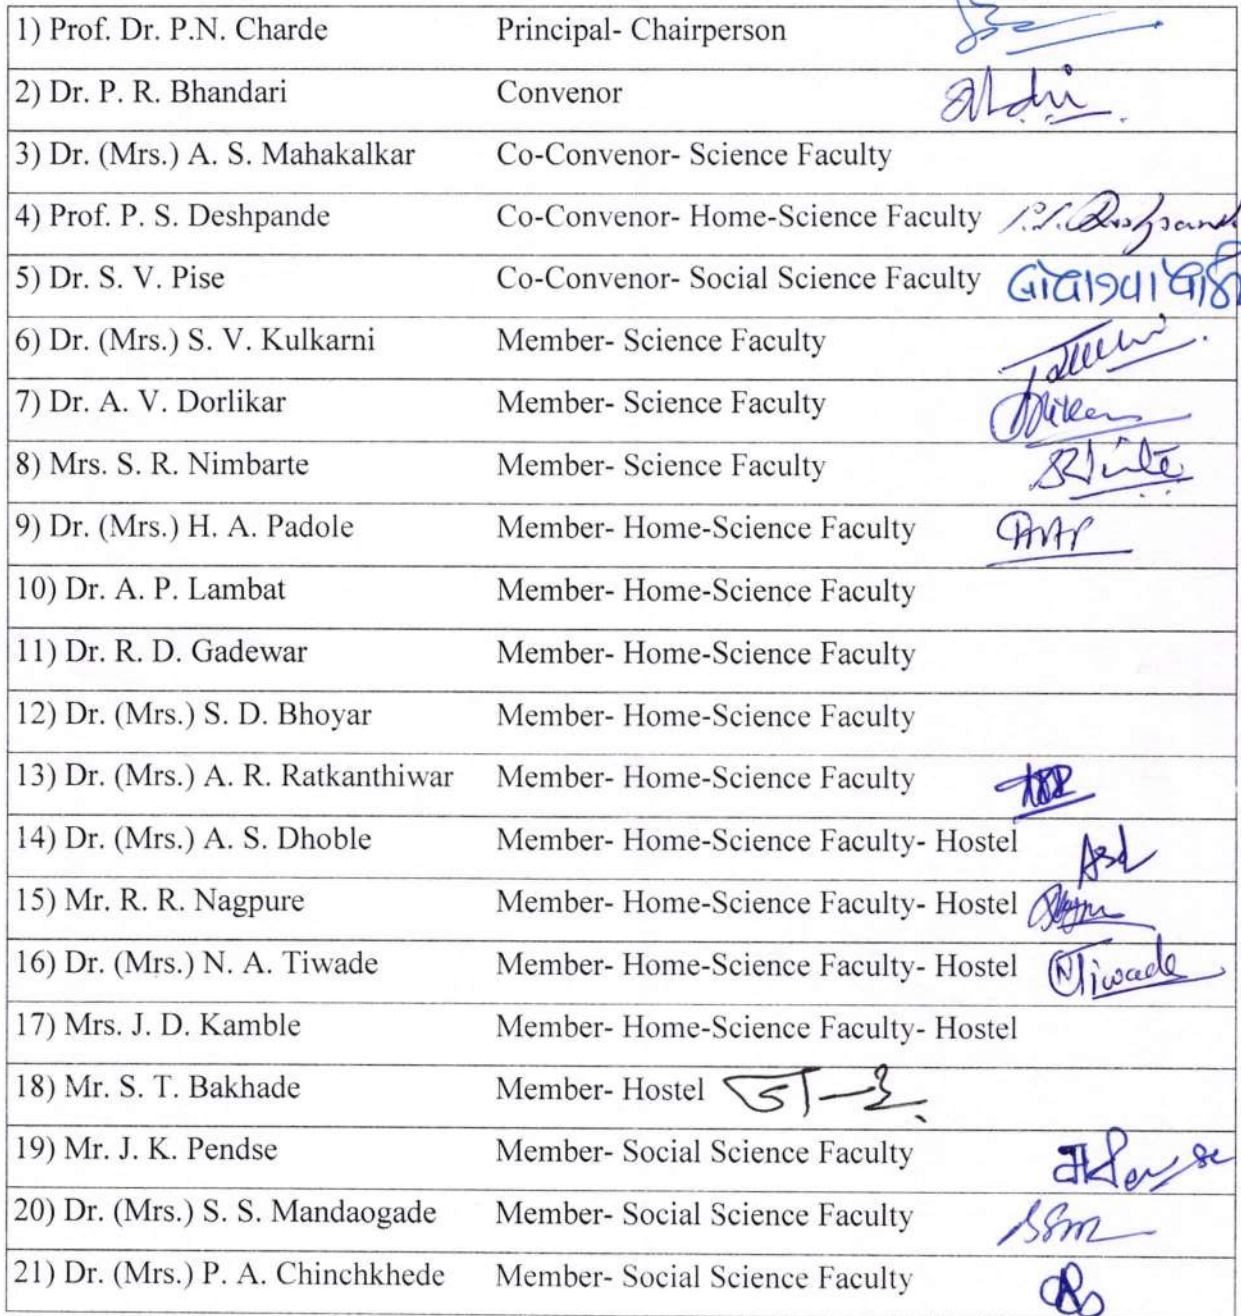 1) Prof. Dr. P.N. Charde Principal- Chairperson
2) Dr. P. R. Bhandari Convenor
3) Dr. (Mrs.) A. S. Mahakalkar Co-Convenor- Science Faculty
4) Prof. P. S. Deshpande Co-Convenor- Home-Science Faculty P.S. Deshpande
5) Dr. S. V. Pise Co-Convenor- Social Science Faculty
6) Dr. (Mrs.) S. V. Kulkarni Member- Science Faculty
7) Dr. A. V. Dorlikar Member- Science Faculty
8) Mrs. S. R. Nimbarte Member- Science Faculty
9) Dr. (Mrs.) H. A. Padole Member- Home-Science Faculty
10) Dr. A. P. Lambat Member- Home-Science Faculty
11) Dr. R. D. Gadewar Member- Home-Science Faculty
12) Dr. (Mrs.) S. D. Bhoyar Member- Home-Science Faculty
13) Dr. (Mrs.) A. R. Ratkanthiwar Member- Home-Science Faculty
14) Dr. (Mrs.) A. S. Dhoble Member- Home-Science Faculty- Hostel Asd
15) Mr. R. R. Nagpure Member- Home-Science Faculty- Hostel
16) Dr. (Mrs.) N. A. Tiwade Member- Home-Science Faculty- Hostel NTiwade
17) Mrs. J. D. Kamble Member- Home-Science Faculty- Hostel
18) Mr. S. T. Bakhade Member- Hostel
19) Mr. J. K. Pendse Member- Social Science Faculty
20) Dr. (Mrs.) S. S. Mandaogade Member- Social Science Faculty SSM
21) Dr. (Mrs.) P. A. Chinchkhede Member- Social Science Faculty